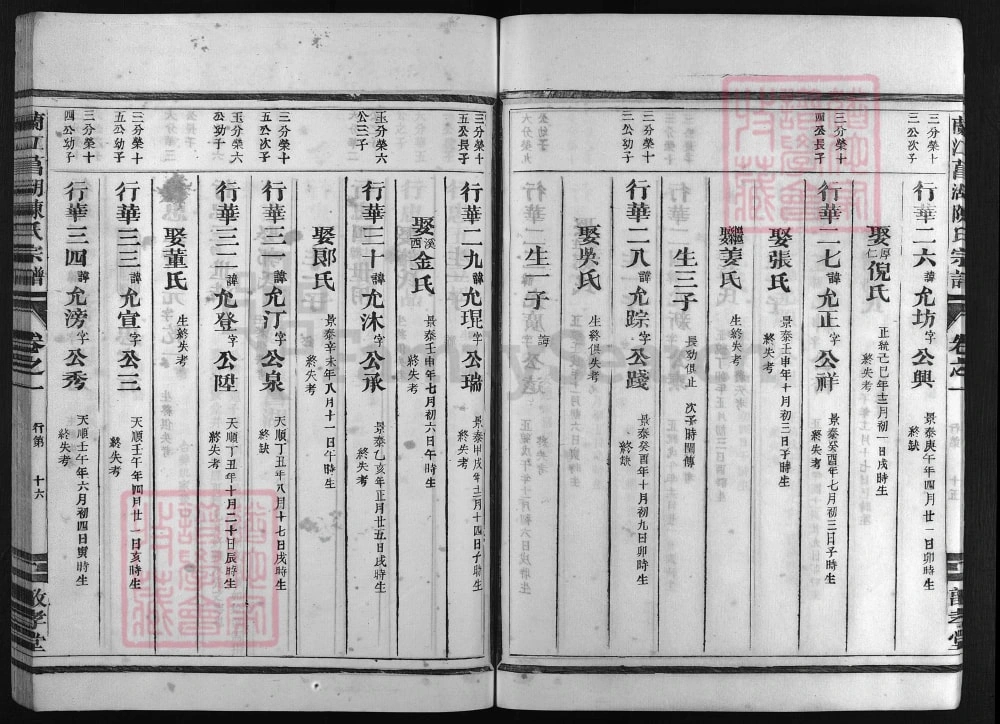 三分榮十
三公次子
行華二六 諱 允坊 字 公興
景泰庚午年四月廿一日卯時生
終缺
娶厚仁倪氏
正統己巳年十二月初一日戌時生
終失考
三分榮十
四公長子
行華二七 諱 允正 字 公祥
景泰癸酉年七月初三日子時生
終失考
娶張氏
景泰壬申年十月初三日子時生
終失考
繼娶姜氏
生終失考
生三子
長幼俱止 次子時閏傳
三分榮十
三公幼子
行華二八 諱 允踪 字 公踐
景泰癸酉年十月初九日卯時生
終缺
娶吳氏
生終俱失考
生一子
誨
三分榮十
五公長子
行華二九 諱 允琨 字 公瑞
景泰甲戌年十二月十四日子時生
終失考
娶西溪金氏
景泰壬申年七月初六日午時生
終失考
三分榮六
公三子
行華三十 諱 允沐 字 公承
景泰乙亥年正月廿五日戌時生
終失考
娶郎氏
景泰辛未年八月十一日午時生
終失考
三分榮十
五公次子
行華三一 諱 允汀 字 公泉
天順丁丑年八月十七日戌時生
終缺
三分榮六
公幼子
行華三二 諱 允登 字 公陞
天順丁丑年十月二十日辰時生
終失考
娶董氏
生終失考
三分榮十
五公幼子
行華三三 諱 允宣 字 公三
天順壬午年四月廿一日亥時生
終失考
三分榮十
四公幼子
行華三四 諱 允滂 字 公秀
天順壬午年六月初四日寅時生
終失考
卷之一
行第
十六